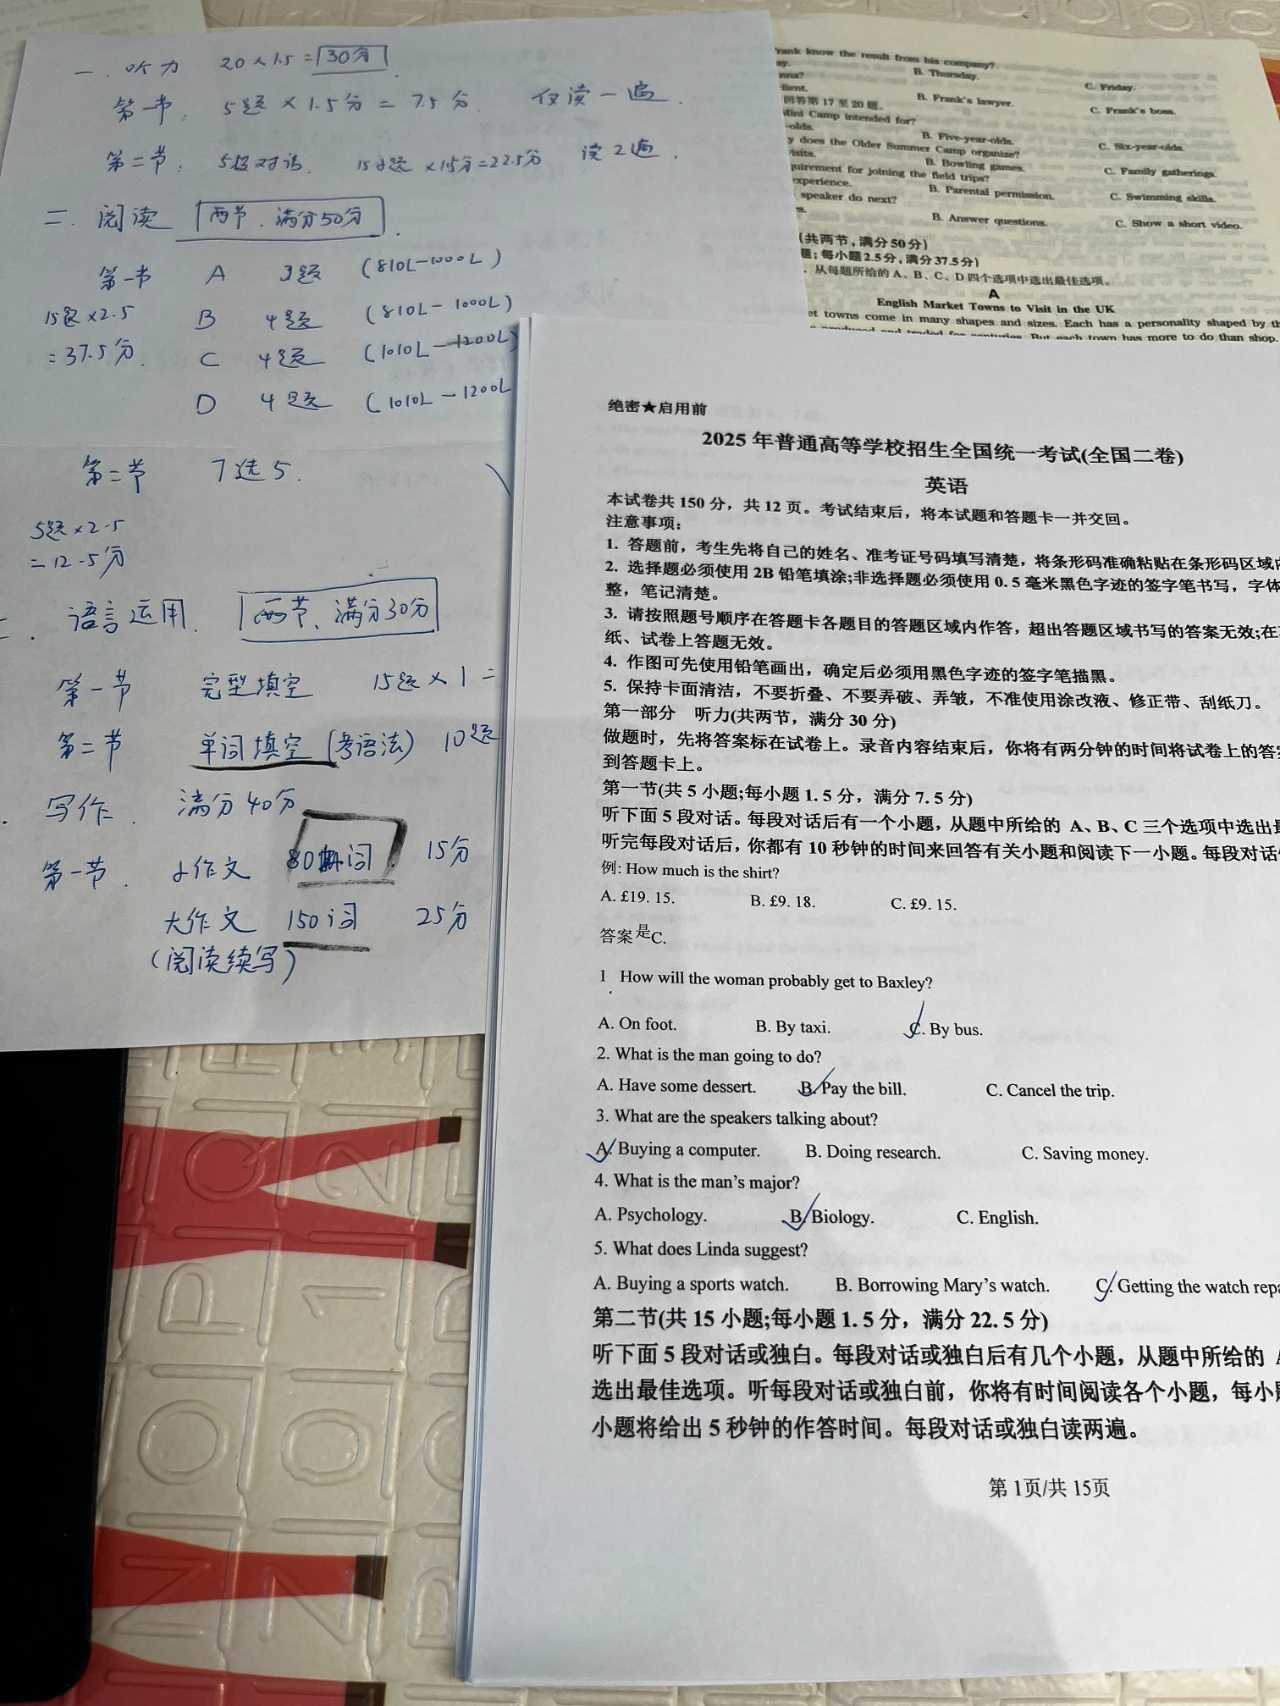 一. 听力 20×1.5=30分
第一节: 5题×1.5分=7.5分. 仅读一遍.
第二节: 5段对话. 15小题×1.5分=22.5分 读2遍.
二. 阅读 两节.满分50分.
第一节 A 3题 (810L-1000L)
15题×2.5 B 4题 (810L-1000L)
=37.5分. C 4题 (1010L-1200L)
D 4题 (1010L-1200L
第二节 7选5.
5题×2.5
=12.5分
语言运用. 两节、满分30分
第一节 完型填空 15题×1=
第二节 单词填空(考语法) 10题
写作. 满分40分
第一节. 小作文 80词 15分
大作文 150词 25分
(阅读续写)
rank know the result from his company?
ay. B. Thursday. C. Friday.
nna?
lient. B. Frank's lawyer. C. Frank's boss.
回答第 17 至 20 题。
Mini Camp intended for?
-olds. B. Five-year-olds. C. Six-year-olds.
y does the Older Summer Camp organize?
visits. B. Bowling games. C. Family gatherings.
quirement for joining the field trips?
experience. B. Parental permission. C. Swimming skills.
speaker do next?
s. B. Answer questions. C. Show a short video.
(共两节,满分 50 分)
题;每小题 2.5 分,满分 37.5 分)
,从每题所给的 A、B、C、D 四个选项中选出最佳选项。
A
English Market Towns to Visit in the UK
et towns come in many shapes and sizes. Each has a personality shaped by th
produced and traded for centuries. But each town has more to do than shop.
绝密★启用前
2025 年普通高等学校招生全国统一考试(全国二卷)
英语
本试卷共 150 分，共 12 页。考试结束后，将本试题和答题卡一并交回。
注意事项:
1. 答题前，考生先将自己的姓名、准考证号码填写清楚，将条形码准确粘贴在条形码区域内
2. 选择题必须使用 2B 铅笔填涂;非选择题必须使用 0.5 毫米黑色字迹的签字笔书写，字体
整，笔记清楚。
3. 请按照题号顺序在答题卡各题目的答题区域内作答，超出答题区域书写的答案无效;在
纸、试卷上答题无效。
4. 作图可先使用铅笔画出，确定后必须用黑色字迹的签字笔描黑。
5. 保持卡面清洁，不要折叠、不要弄破、弄皱，不准使用涂改液、修正带、刮纸刀。
第一部分 听力(共两节，满分 30 分)
做题时，先将答案标在试卷上。录音内容结束后，你将有两分钟的时间将试卷上的答案
到答题卡上。
第一节(共 5 小题;每小题 1.5 分，满分 7.5 分)
听下面 5 段对话。每段对话后有一个小题，从题中所给的 A、B、C 三个选项中选出最
听完每段对话后，你都有 10 秒钟的时间来回答有关小题和阅读下一小题。每段对话
例: How much is the shirt?
A. £19. 15. B. £9. 18. C. £9. 15.
答案是C.
1. How will the woman probably get to Baxley?
A. On foot. B. By taxi. C. By bus.
2. What is the man going to do?
A. Have some dessert. B. Pay the bill. C. Cancel the trip.
3. What are the speakers talking about?
A. Buying a computer. B. Doing research. C. Saving money.
4. What is the man's major?
A. Psychology. B. Biology. C. English.
5. What does Linda suggest?
A. Buying a sports watch. B. Borrowing Mary's watch. C. Getting the watch repa
第二节(共 15 小题;每小题 1.5 分，满分 22.5 分)
听下面 5 段对话或独白。每段对话或独白后有几个小题，从题中所给的
选出最佳选项。听每段对话或独白前，你将有时间阅读各个小题，每小题
小题将给出 5 秒钟的作答时间。每段对话或独白读两遍。
第 1页/共 15页